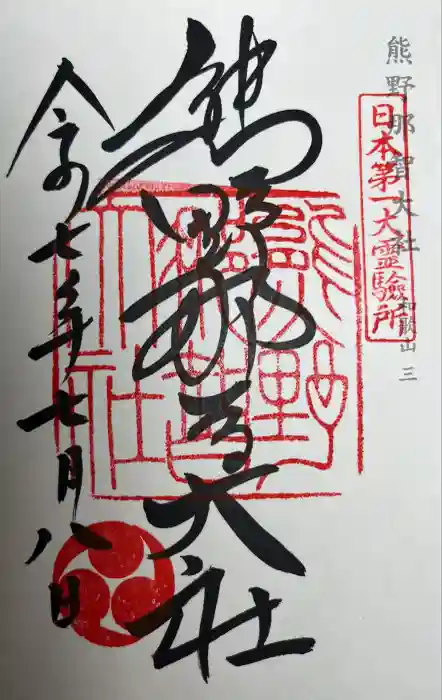 熊野那智大社 和歌山 三
日本第一大霊験所
熊野那智大社
令和七年七月八日